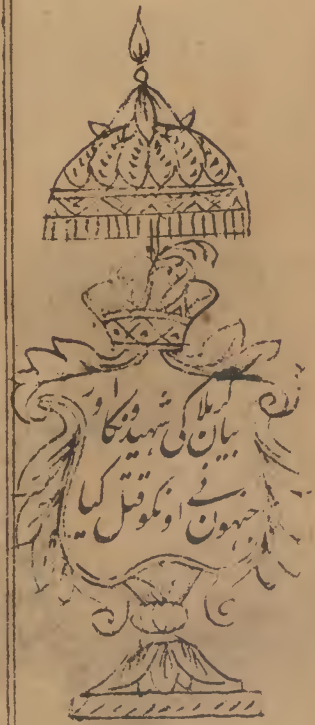 بیان کربلا کی شہیدونکا اور
جنہون نے اونکو قتل کیا